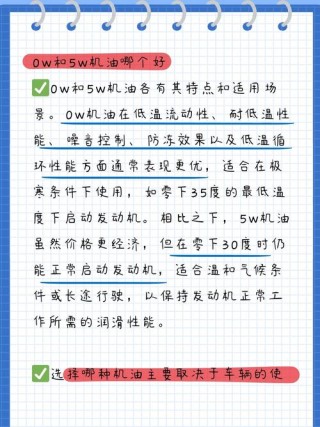 0w和5w机油哪个好
✅0w和5w机油各有其特点和适用场
景。0w机油在低温流动性、耐低温性
能、噪音控制、防冻效果以及低温循
环性能方面通常表现更优，适合在极
寒条件下使用，如零下35度的最低温
度下启动发动机。相比之下，5w机油
虽然价格更经济，但在零下30度时仍
能正常启动发动机，适合温和气候条
件或长途行驶，以保持发动机正常工
作所需的润滑性能。
✅选择哪种机油主要取决于车辆的使